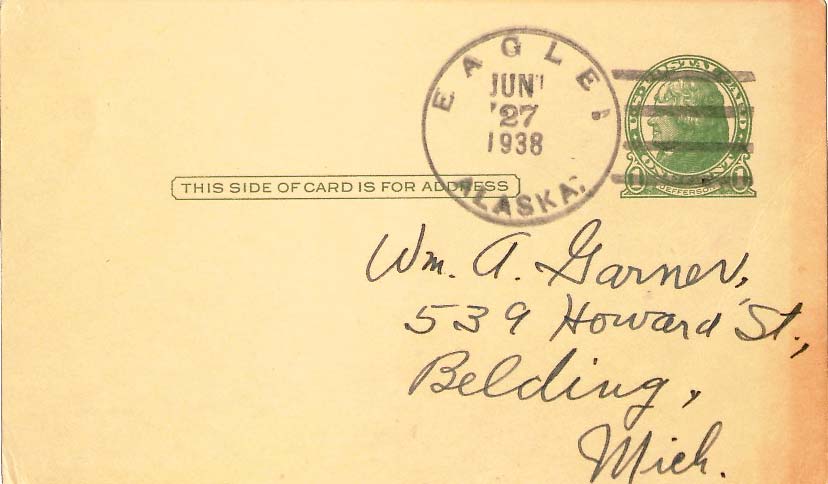 EAGLE
JUN
27
1938
ALASKA.
U.S. POSTAL CARD
1 ONE CENT 1
JEFFERSON
THIS SIDE OF CARD IS FOR ADDRESS
Wm. A. Garner,
539 Howard St.,
Belding,
Mich.